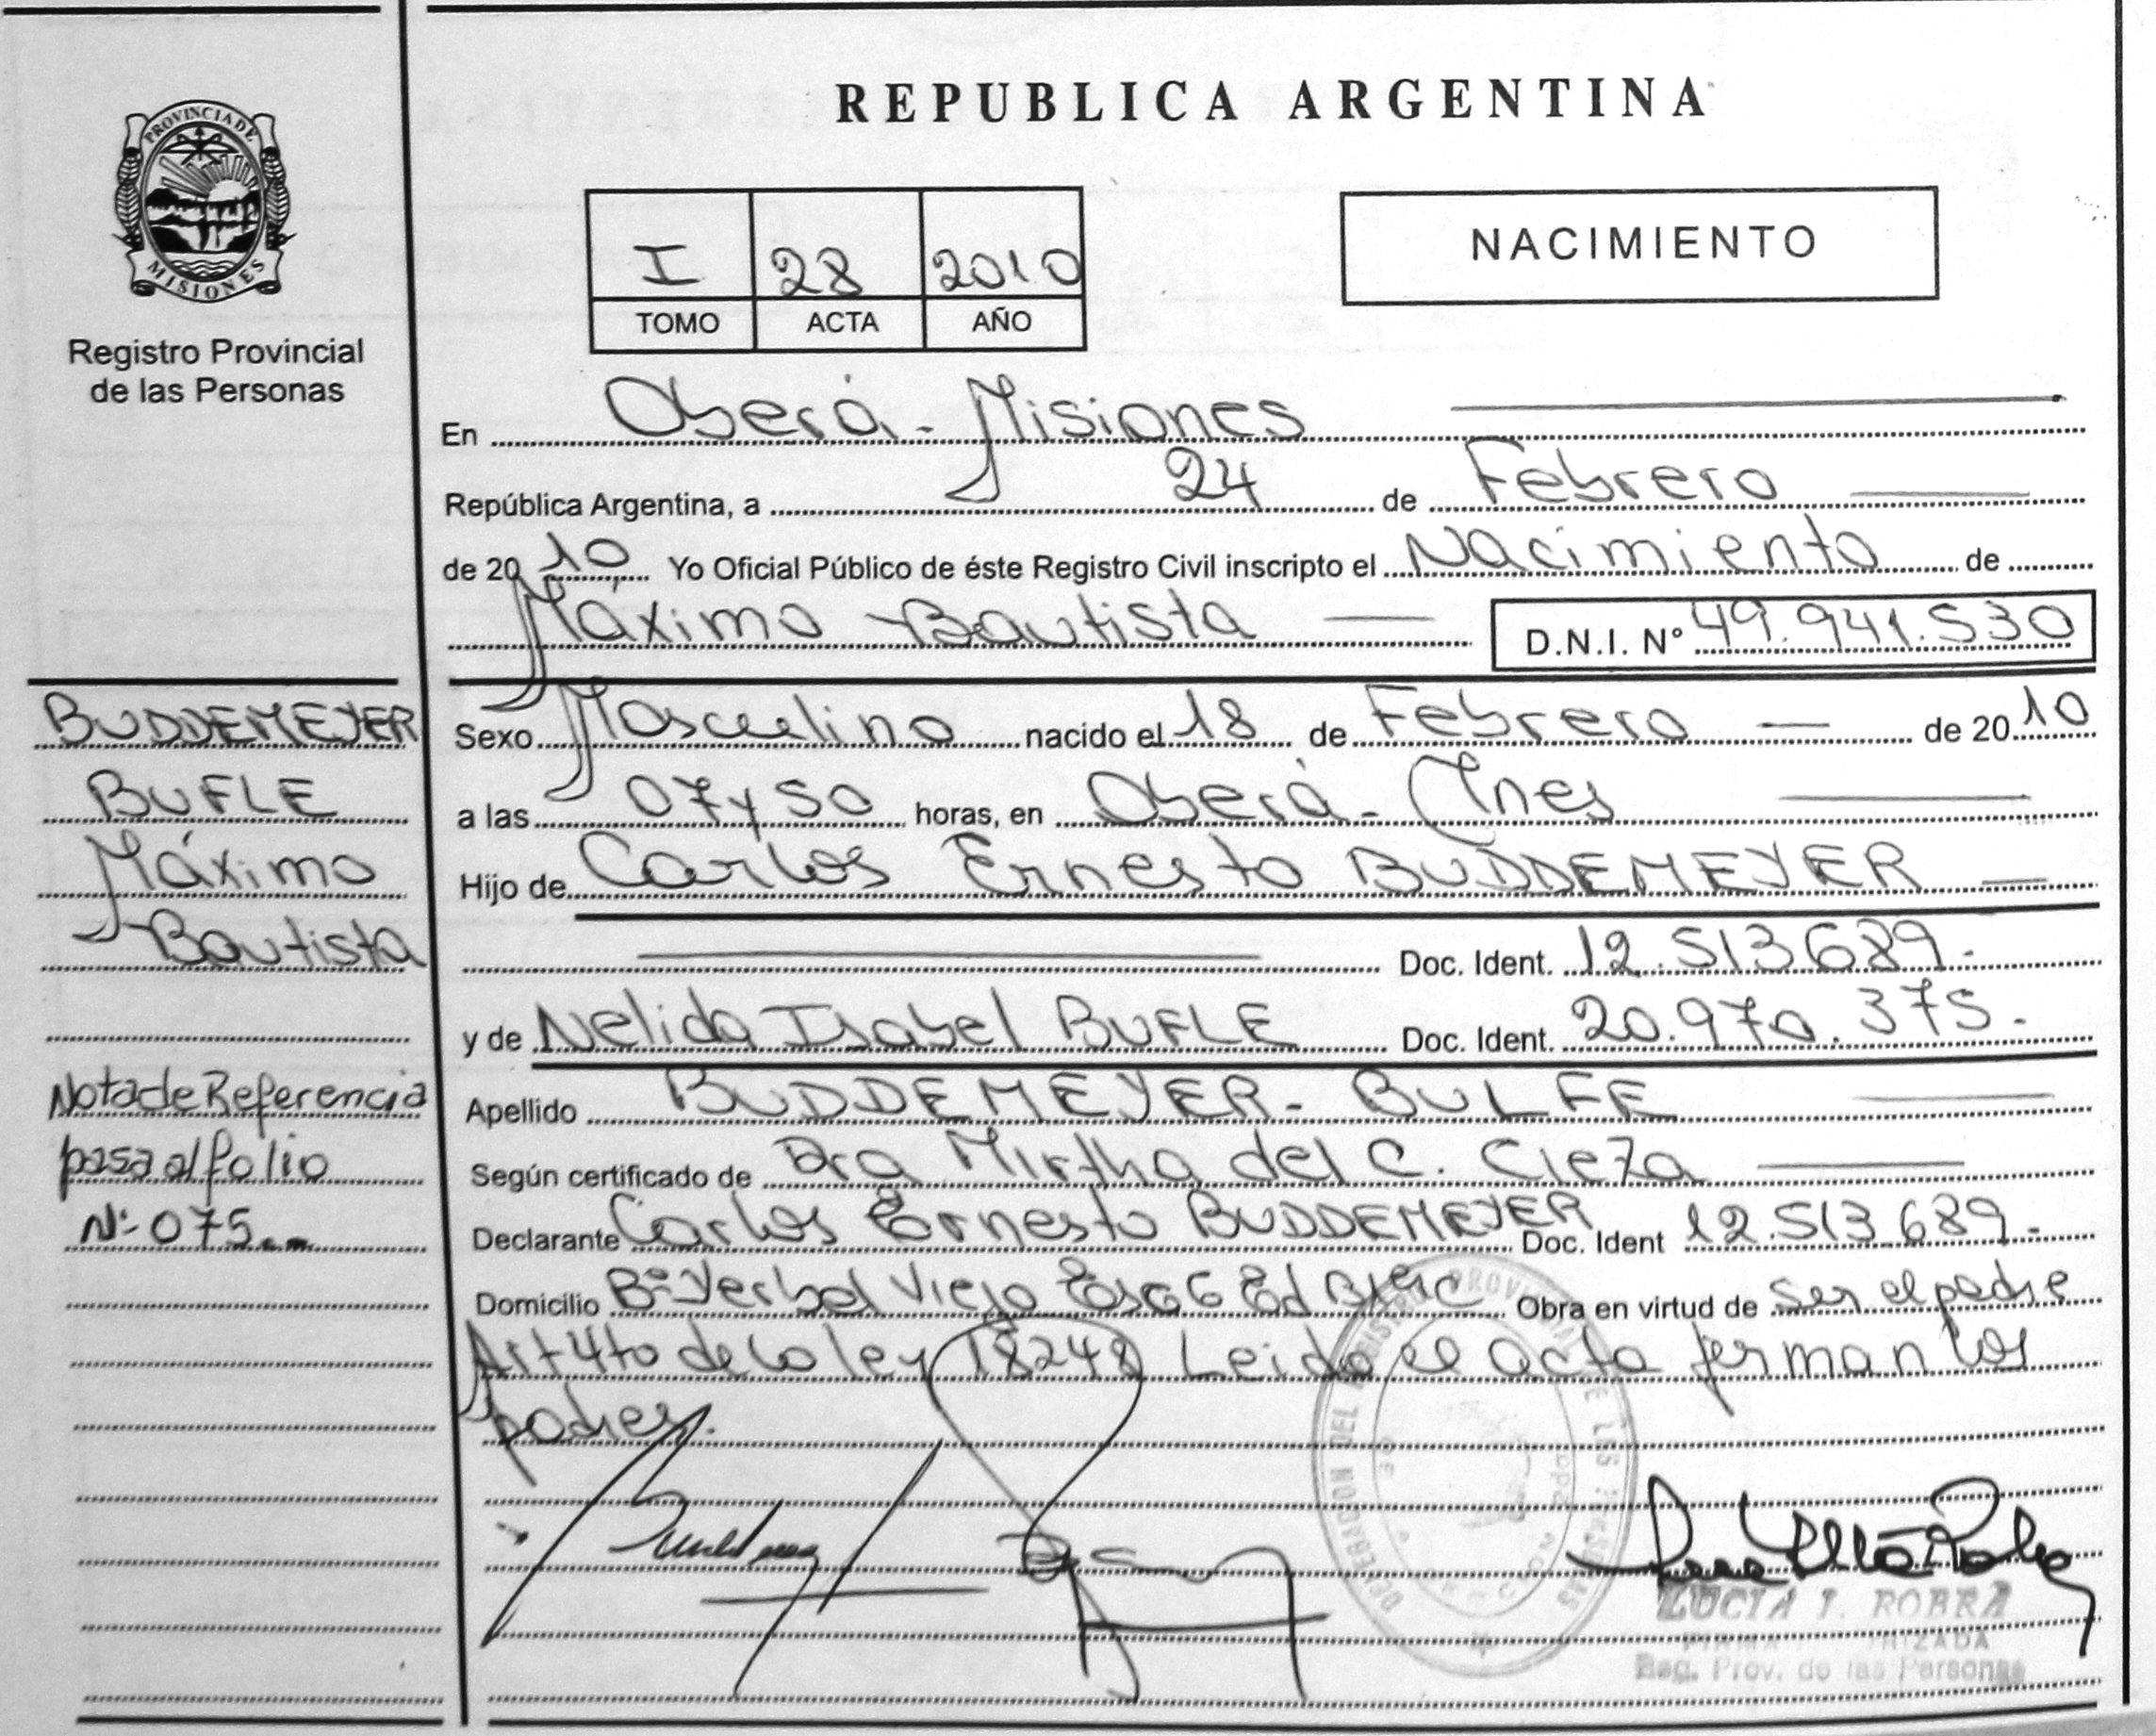 PROVINCIA DE
MISIONES
Registro Provincial
de las Personas
BUDDEMEYER
BUFLE
Máximo
Bautista
Nota de Referencia
pasa al folio
Nº 075
REPUBLICA ARGENTINA
I 28 2010
TOMO ACTA AÑO
NACIMIENTO
En Oberá - Misiones
República Argentina, a 24 de Febrero
de 2010 Yo Oficial Público de éste Registro Civil inscripto el Nacimiento de
Máximo Bautista D.N.I. Nº 49.941.530
Sexo Masculino nacido el 18 de Febrero de 2010
a las 07 y 50 horas, en Oberá - Mnes
Hijo de Carlos Ernesto BUDDEMEYER
Doc. Ident. 12.513689.
y de Nelida Isabel BUFLE Doc. Ident. 20.970.375.
Apellido BUDDEMEYER - BULFE
Según certificado de Dra Mirtha del C. Cieza
Declarante Carlos Ernesto BUDDEMEYER Doc. Ident 12.513.689.
Domicilio Bº Yerbal Viejo Esc 6 Ed Obra en virtud de ser el padre
Art 4to de la ley 18248 Leida el acta firman los
padres.
LUCIA I. ROBRA
Reg. Prov. de las Personas